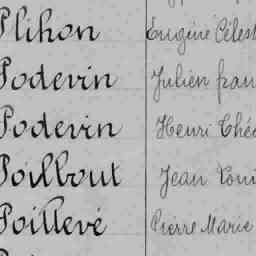 Plihon Eugène Célest
Podevin Julien fran
Podevin Henri Thé
Poilbout Jean Loui
Poillevé Pierre Marie